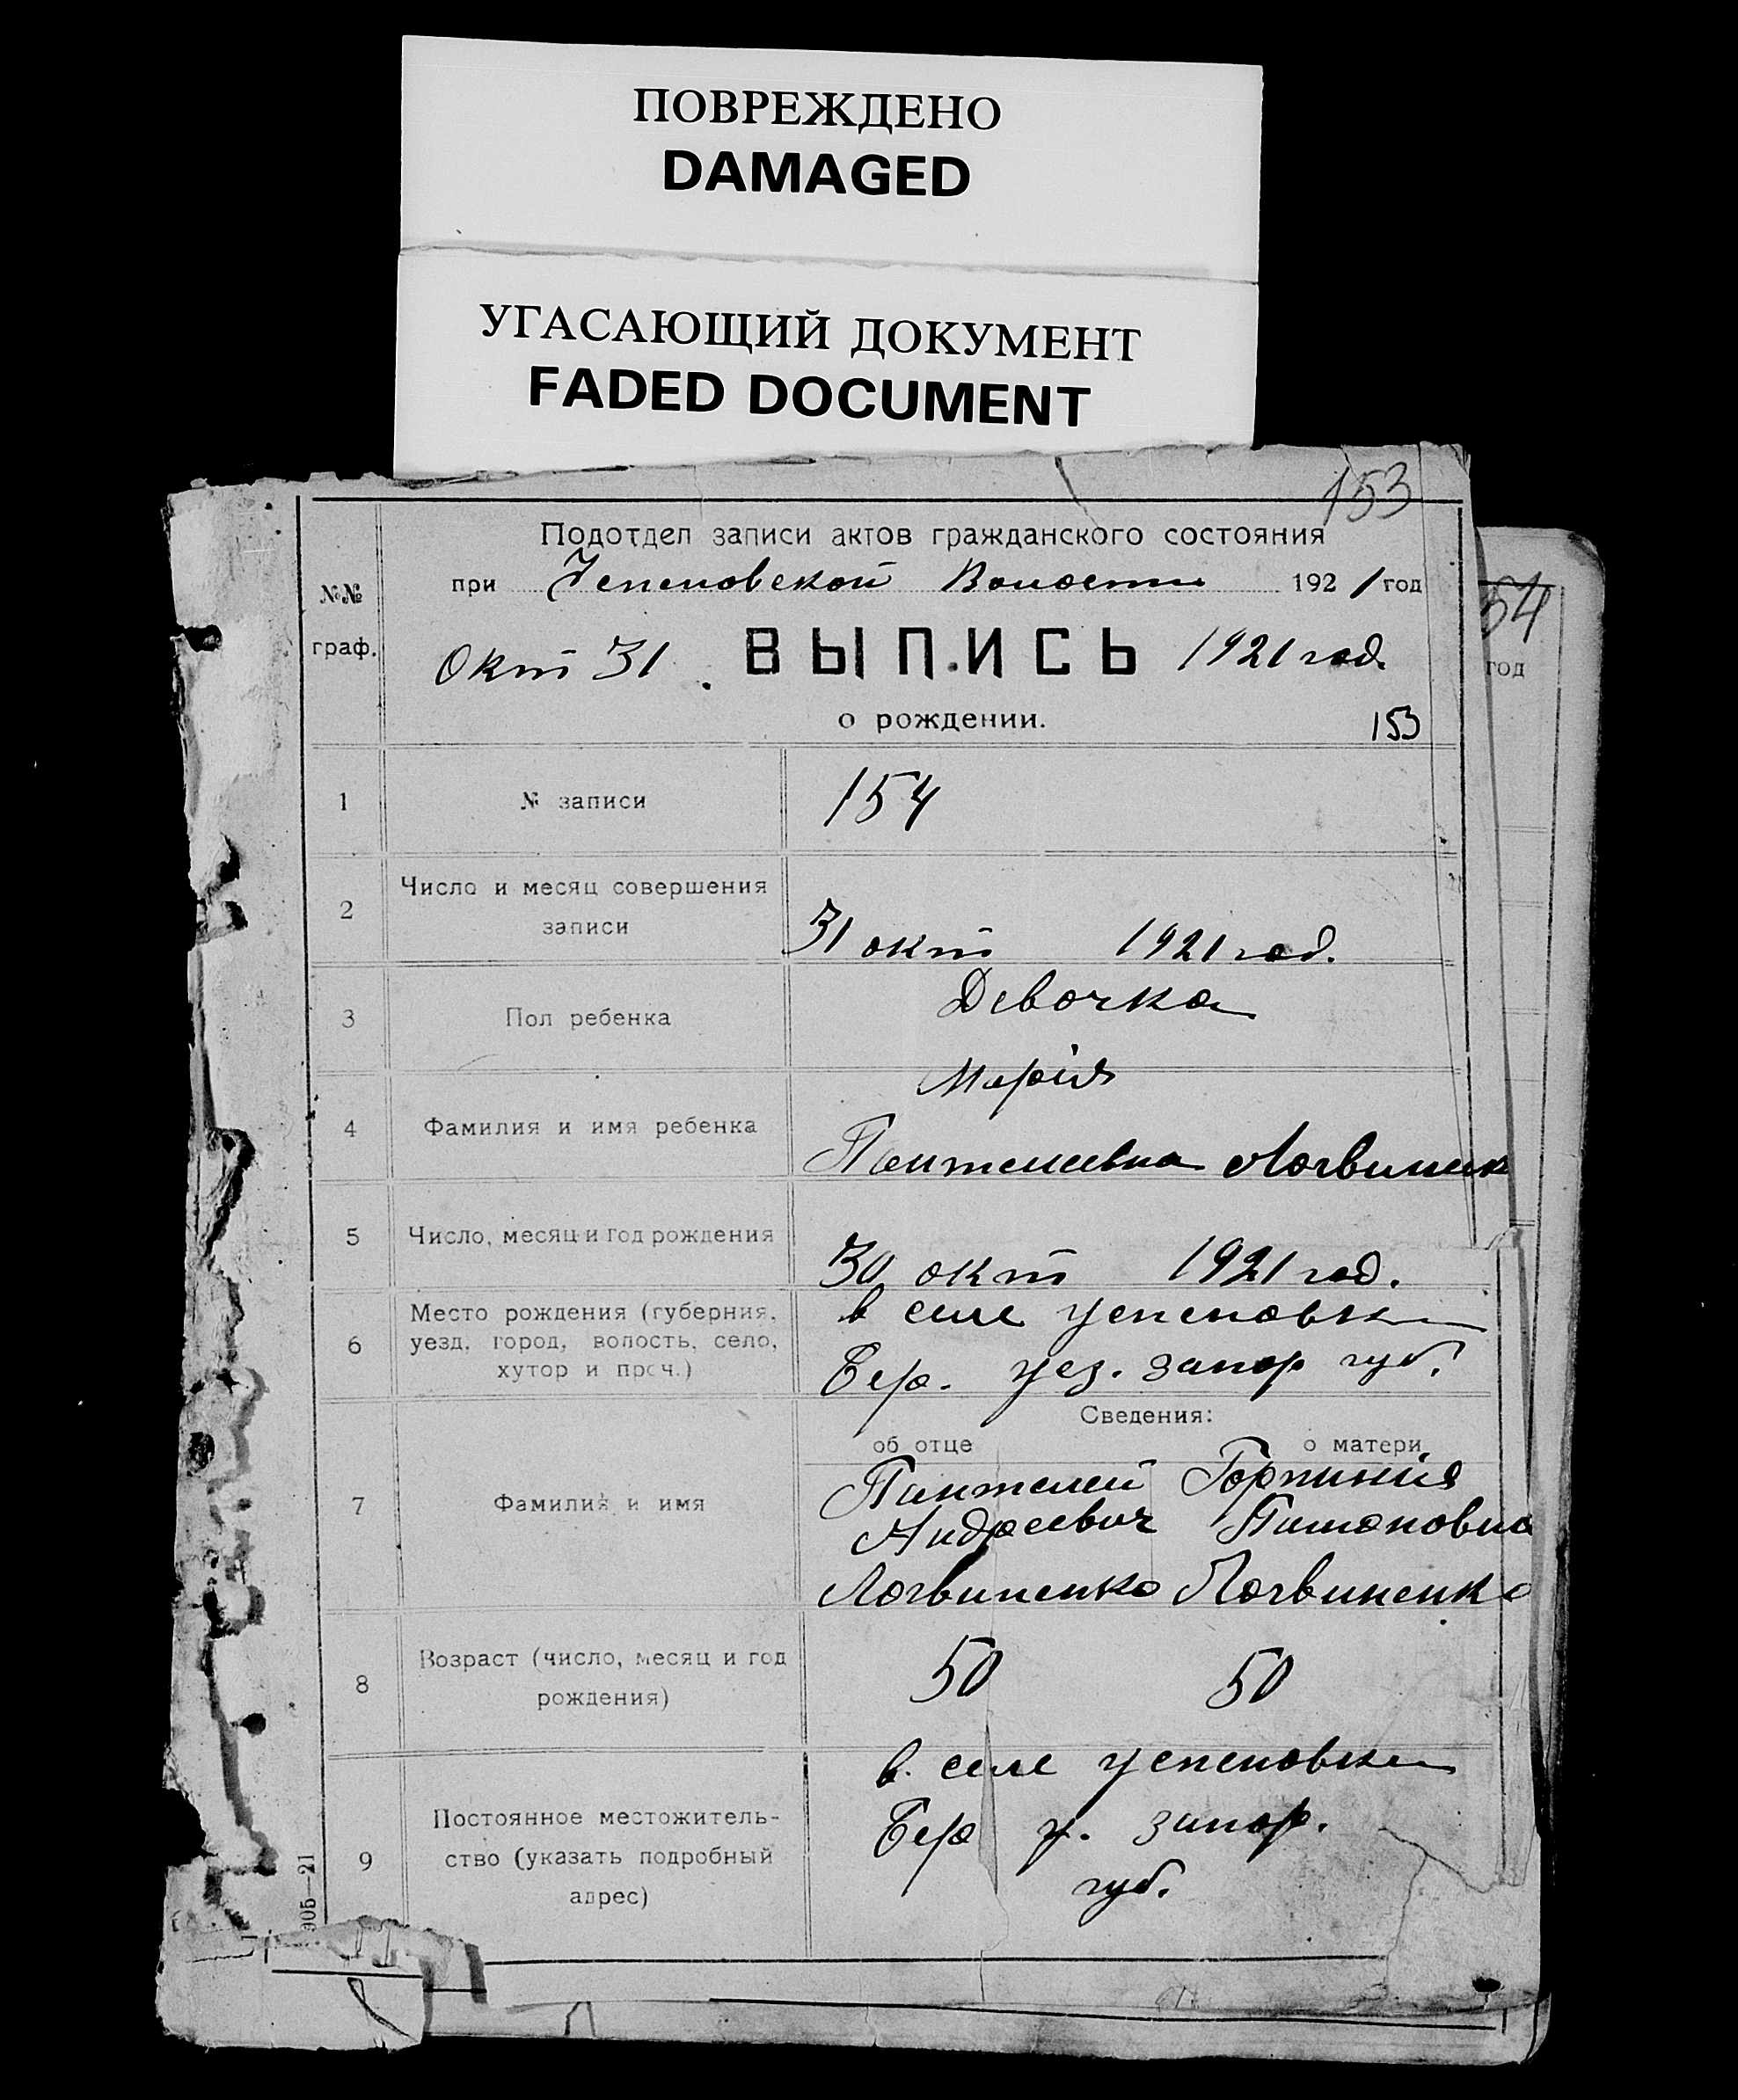 ПОВРЕЖДЕНО
DAMAGED
УГАСАЮЩИЙ ДОКУМЕНТ
FADED DOCUMENT
153
Подотдел записи актов гражданского состояния
при Успеновской Волости 1921 год
54
год
№№
граф.
Окт 31. ВЫПИСЬ 1921 год.
о рождении.
153
1 № записи 154
2 Число и месяц совершения
записи
31 окт 1921 год.
3 Пол ребенка Девочка
Марія
4 Фамилия и имя ребенка
Пантелиевна Логвиненк
5 Число, месяц и год рождения
30 окт 1921 год.
6 Место рождения (губерния,
уезд, город, волость, село,
хутор и проч.)
в селе Успеновки
Бер. уез. запор губ.
Сведения:
об отце о матери
7 Фамилия и имя
Пантелей Горпинія
Андреевич
Логвиненко Логвиненко
8 Возраст (число, месяц и год
рождения)
50 50
9 Постоянное местожитель-
ство (указать подробный
адрес)
в. селе успеновки
Бер у. запор.
губ.
905—21